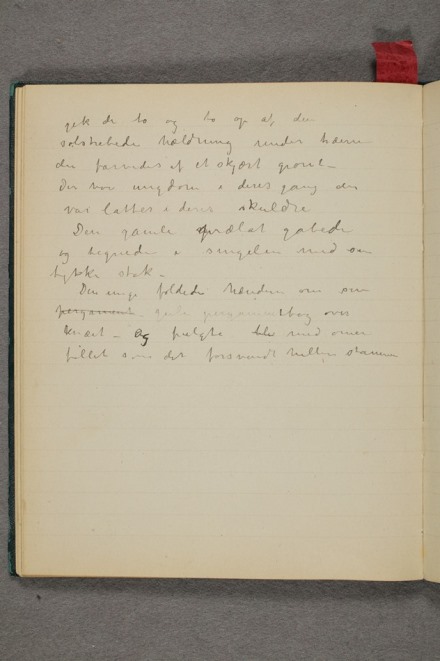 gik de to og to op ad den
solstribede hældning under træerne
der farvedes af et skjært grønt –
Der var ungdom i deres gang der
var latter i deres skuldre
Den gamle prælat gabede
og tegnede i singelen med sin
tykke stok –
Den unge foldede hænderne om sin
pergaments gule pergamentbog over
knæet – og fulgte med
fillet som det forsvandt mellem stammer